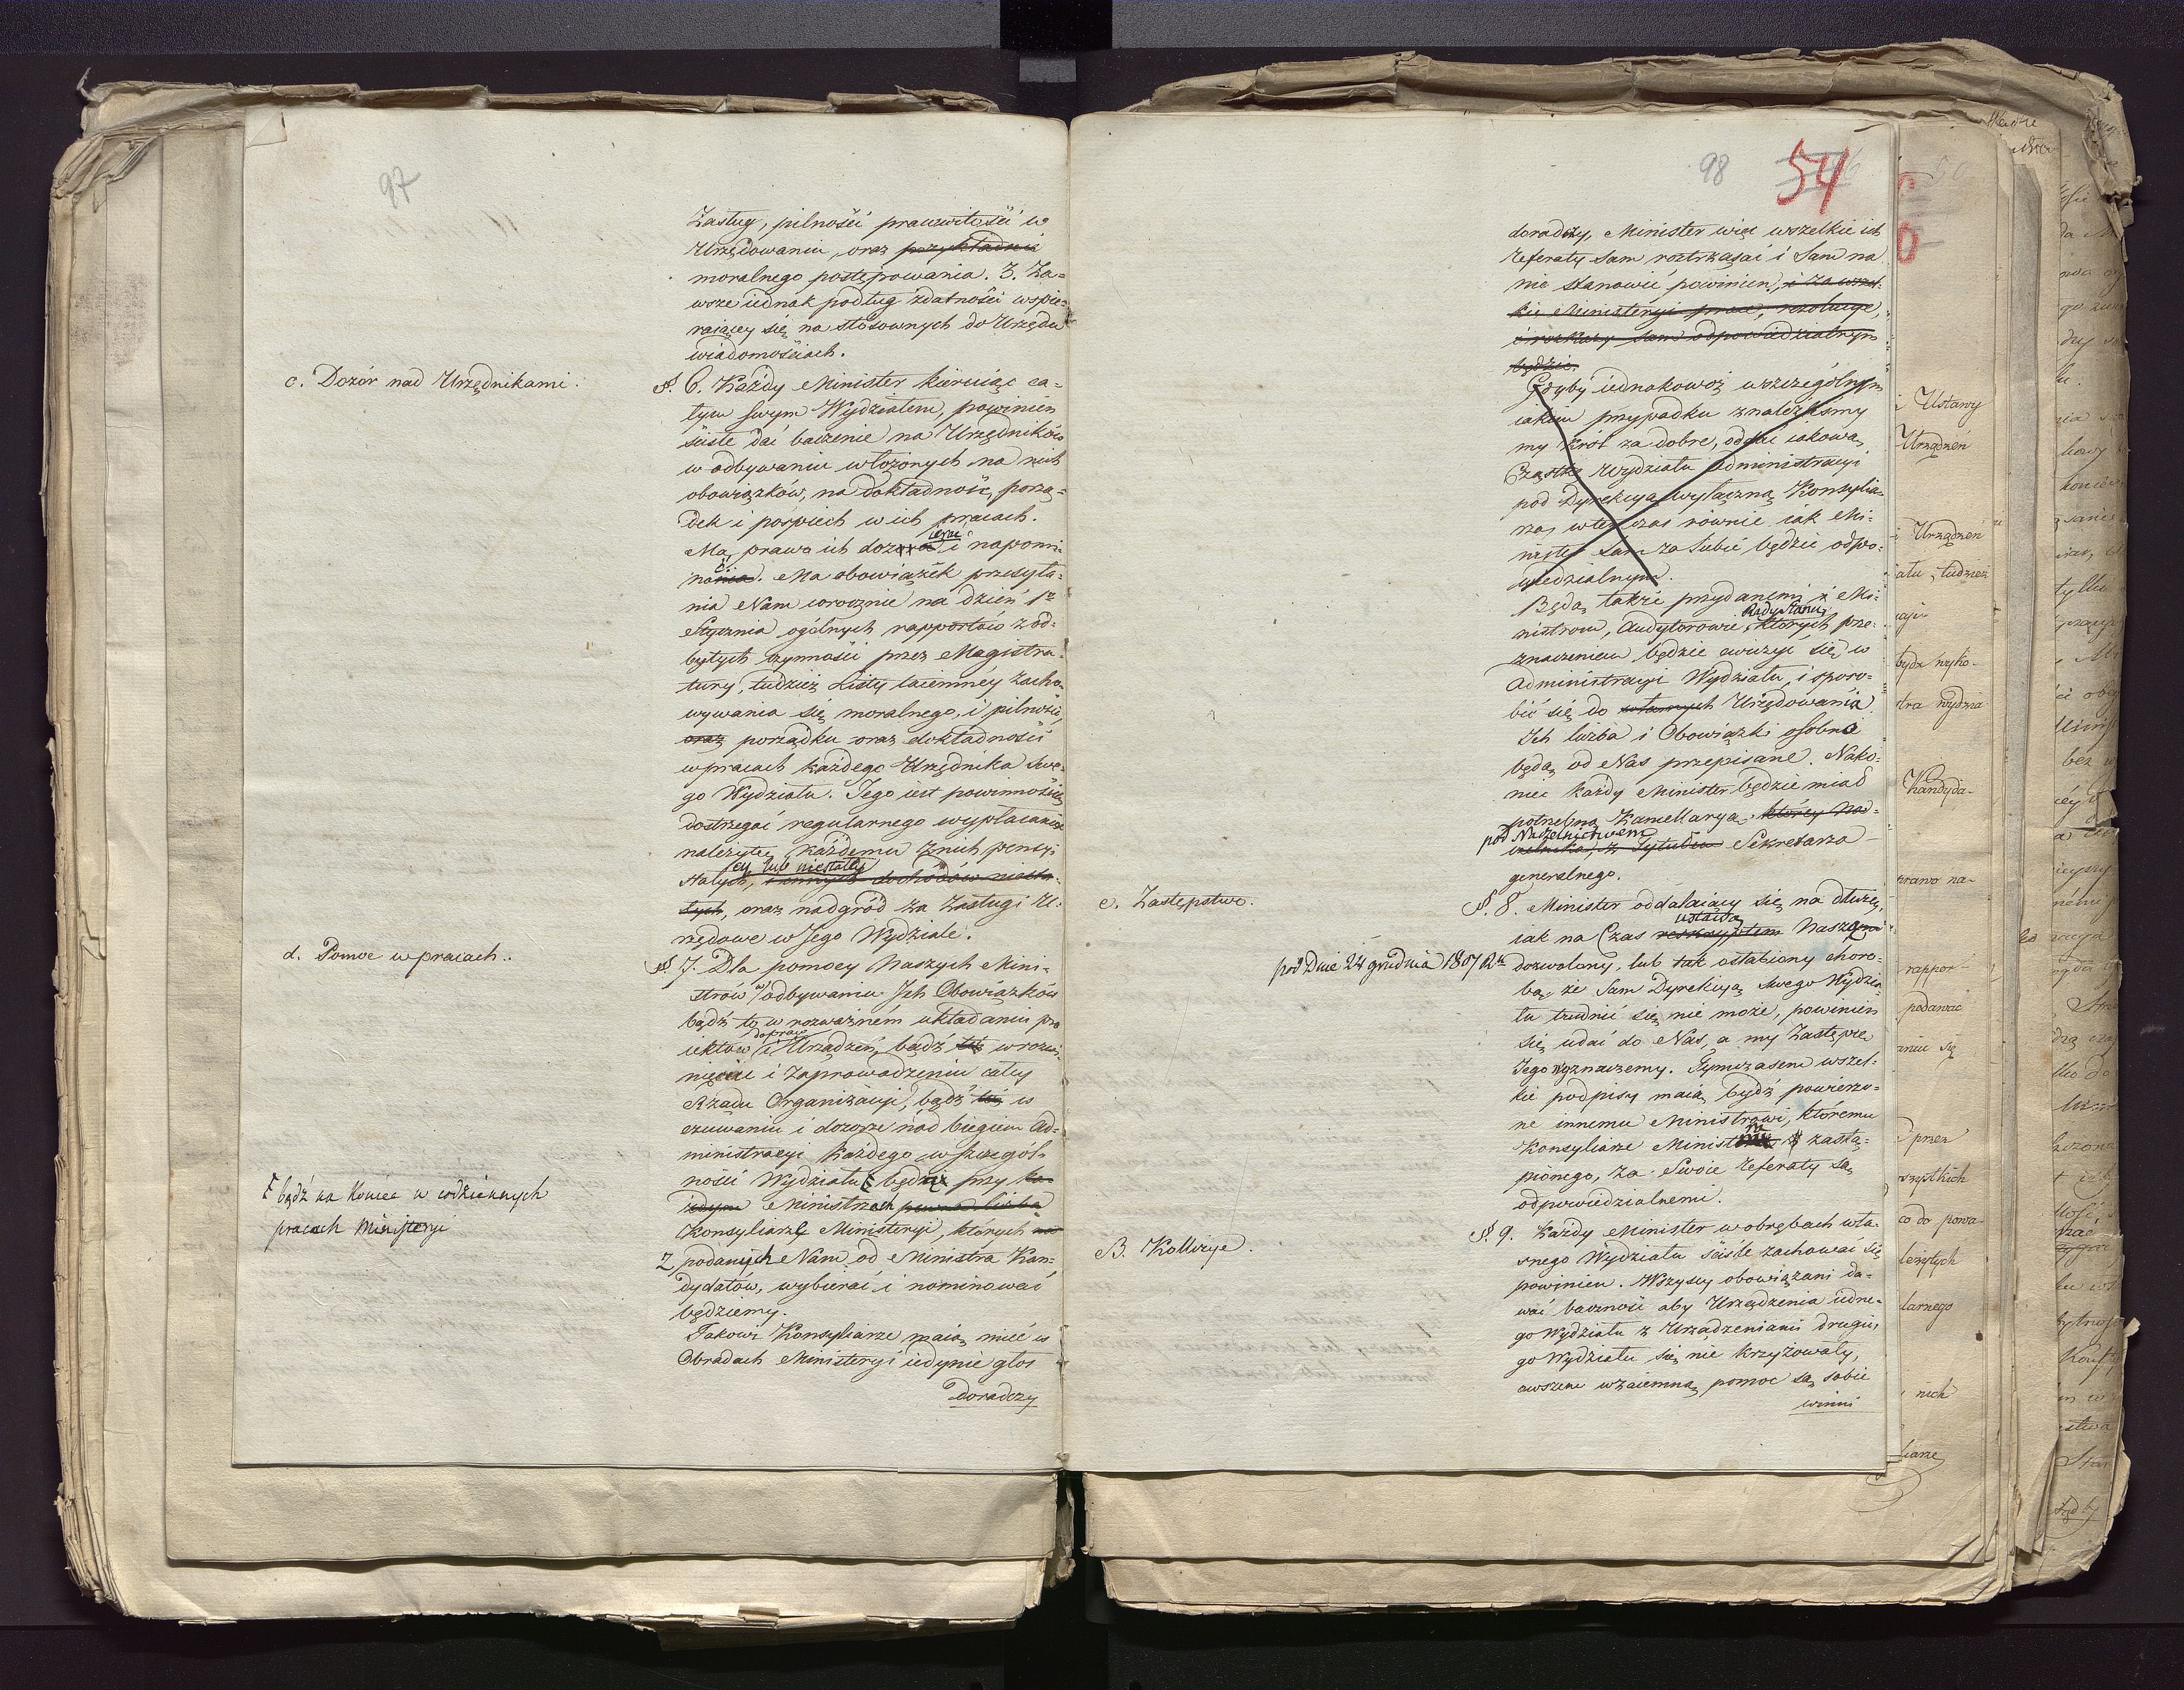 97
Zasług, pilności pracowitości w
Urzędowaniu, oraz przykładnie
moralnego postępowania. 3. Za=
wsze iednak podług zdatności wspie=
raiącey się na stosownych do Urzędu
wiadomościach.
c. Dozór nad Urzędnikami.
§. 6. Każdy Minister kieruiąc ca=
łym swym Wydziałem, powinien
ściśle dać baczenie na Urzędników
w odbywaniu włożonych na nich
obowiązków, na dokładność, porzą=
dek i pośpiech w ich pracach.
Ma prawo ich i napomi=
nania. Ma obowiązek przesyła=
nia Nam corocznie na dzień 1
Stycznia ogólnych rapportów z od=
bytych czynności przez Magistra=
tury, tudzież Listy taiemney zacho=
wywania się moralnego, i pilności,
oraz porządku oraz dokładności
w pracach każdego Urzędnika swe=
go Wydziału. Jego iest powinnością
dostrzegać regularnego wypłacania
należytey każdemu z nich pensyi
ey lub niestałey
stałych, i innych dochodów niesta=
łych, oraz nadgród za zasługi U=
rzędowe w Jego Wydziale.
d. Pomoc w pracach.
§. 7. Dla pomocy Naszych Mini=
strów w odbywaniu Ich Obowiązków
bądź to w rozważnem układaniu pro
iektów do praw i Urządzeń, bądź też w rozwi=
nięciu i zaprowadzeniu całey
Rządu Organizacyi, bądź też w
czuwaniu i dozorze nad biegiem Ad=
ministracyi każdego w szczegól=
ności Wydziału będą przy ka
żdym Ministrach pewna liczba
bądź na koniec w codziennych
pracach Ministeryi
Konsyliarze Ministeryi, których
z podanych Nam od Ministra Kan=
dydatów, wybierać i nominować
będziemy.
Takowi Konsyliarze maią mieć w
Obradach Ministeryi iedynie głos
doradczy
98
54
doradczy, Minister więc wszelkie ich
Referaty sam roztrząsać i sam na
nie stanowić powinien, i za wszel=
kie Ministeryi prace, rezolucye,
i rozkazy sam odpowiedzialnym
będzie.
Gdyby iednakowoż w szczególnym
iakim przypadku znaleźliśmy
my Król za dobre, oddać iakową
Cząstkę Wydziału Administracyi
pod Dyrekcyą wyłączną Konsylia=
rza, wtenczas równie iak Mi=
nister sam za siebie będzie odpo=
wiedzialnym.
Będą także przydanemi Mi=
nistrom, Audytorowie Rady Stanu, których prze=
znaczeniem będzie ćwiczyć się w
Administracyi Wydziału, i sposo=
bić się do Urzędowania
Ich liczba i Obowiązki osobno
będą od Nas przepisane. Nako=
niec każdy Minister będzie miał
potrzebną Kancellaryą, którey Nad=
pod Naczelnictwem
czelnika, z Tytułem Sekretarza
generalnego.
e. Zastępstwo.
§. 8. Minister oddalaiący się na dłużey,
iak na Czas ustawą reskryptem Naszym
pod Dniem 24 grudnia 1807 Ru dozwolony, lub tak osłabiony choro=
bą że sam Dyrekcyą swego Wydzia=
łu trudnić się nie może, powinien
się udać do Nas, a my Zastępcę
Jego wyznaczemy. Tymczasem wszel=
kie podpisy maią bydź powierzo=
ne innemu Ministrowi, któremu
Konsyliarze zastą=
pionego, za Swoie Referaty są
odpowiedzialnemi.
B. Kollizye.
§. 9. Każdy Minister w obrębach wła=
snego Wydziału ściśle zachować się
powinien. Wszyscy obowiązani da=
wać baczność aby Urządzenia iedne=
go Wydziału z Urządzeniami drugie=
go Wydziału się nie krzyżowały,
owszem wzaiemną pomoc są sobie
winni
Ustawy
Urządzeń
Urządzeń
tudzież
Kandyda=
podawać
przez
nich